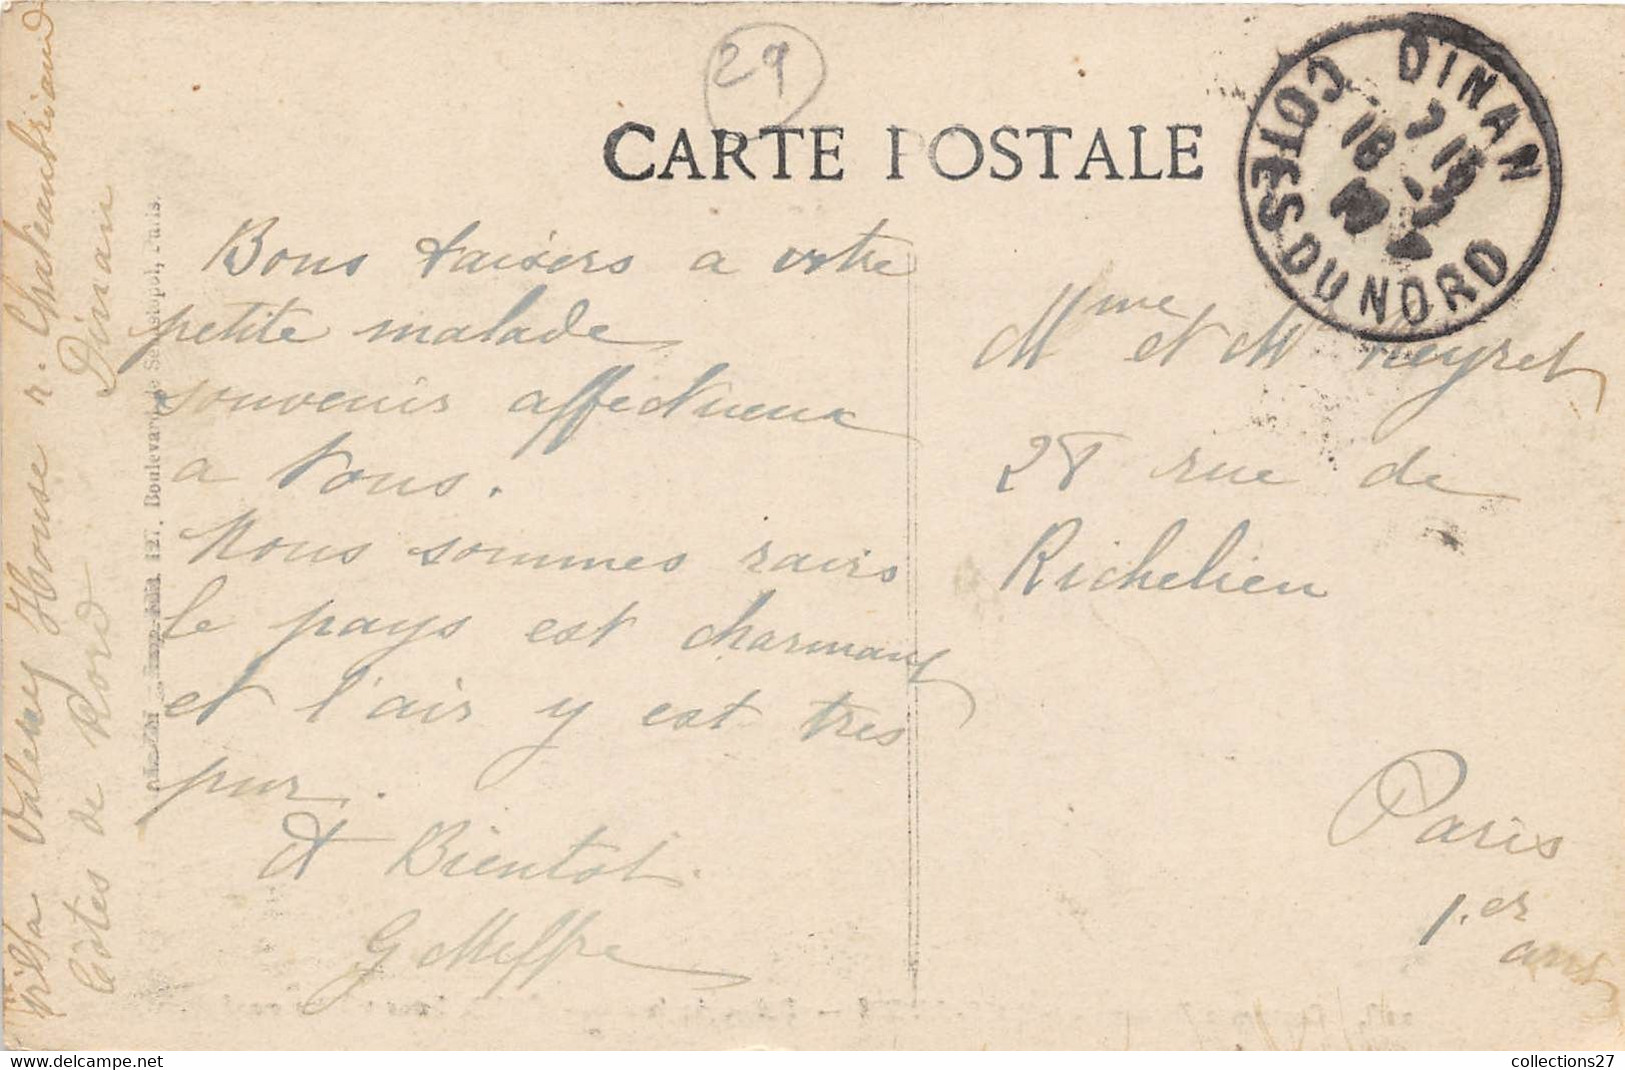 29
CARTE POSTALE
DINAN
COTES DU NORD
18
Bons baisers a votre
petite malade
souvenir affectueux
a tous.
Nous sommes ravis
le pays est charmant
et l'air y est tres
pur.
A Bientot
G Meffre
Mme et M Neyret
28 rue de
Richelieu
Paris
1.er arrt
Villa Valesney House r. Chateaubriand
Dinan
Côtes du Nord
127, Boulevard de Sébastopol, Paris.
collections27